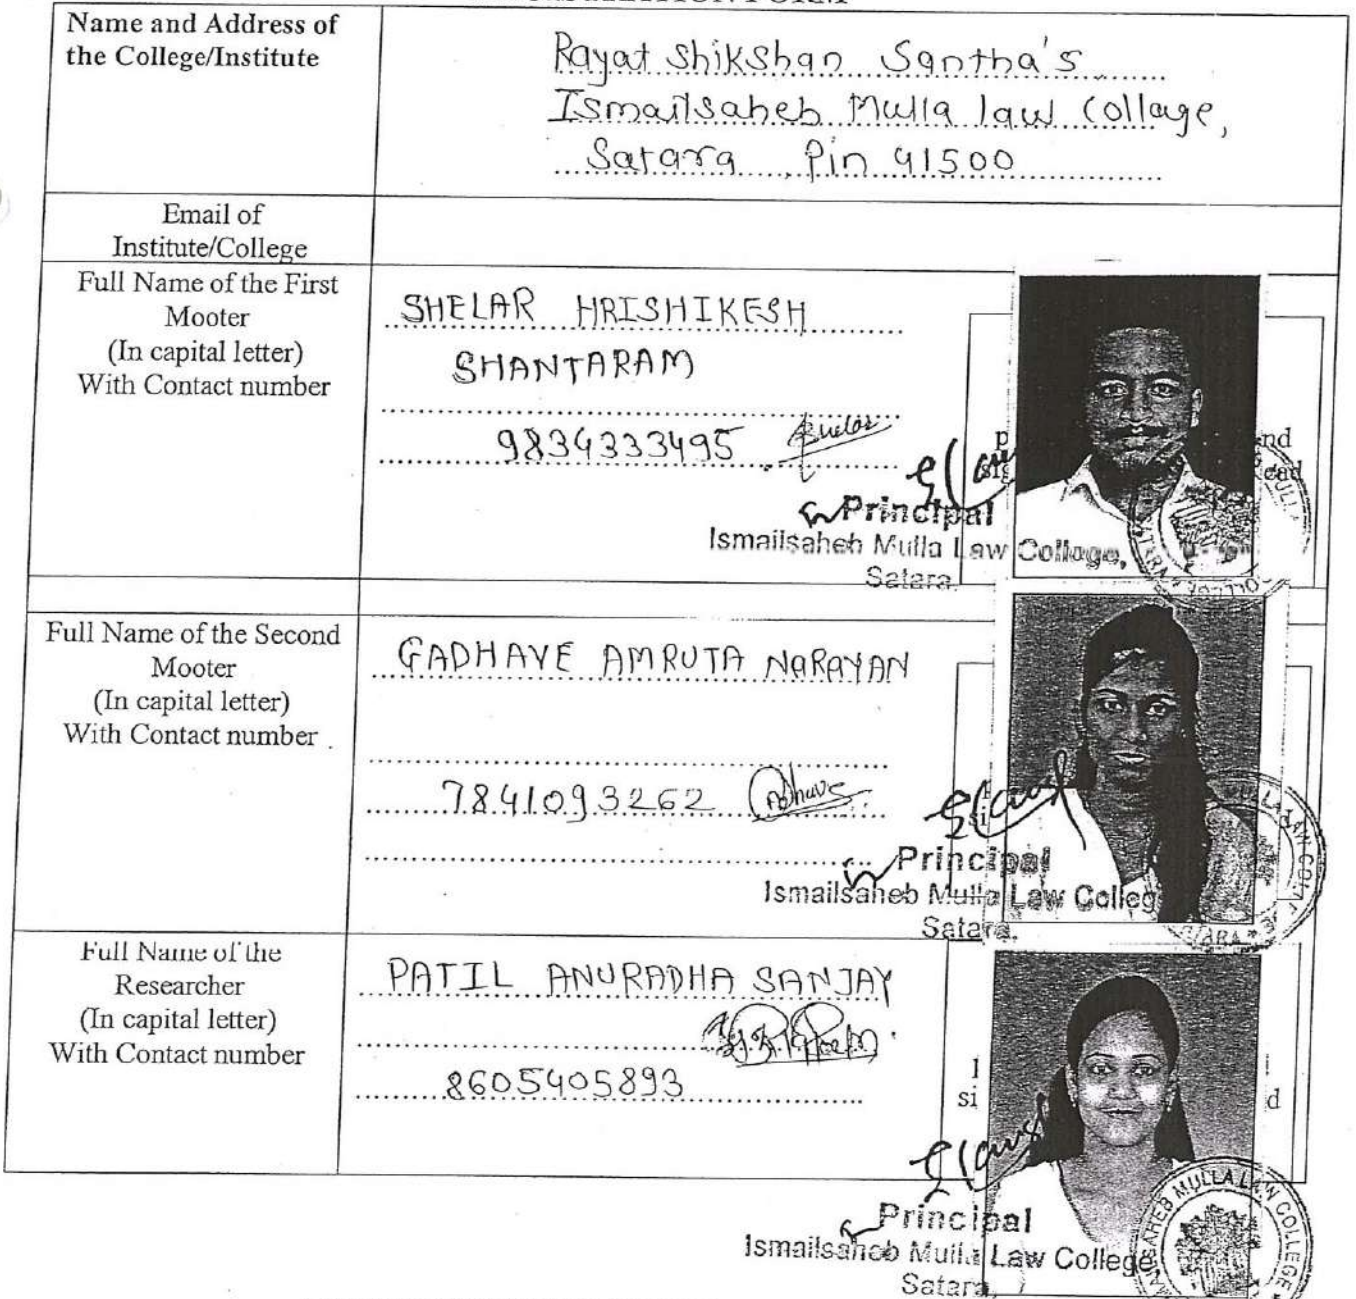 Name and Address of
the College/Institute
Rayat Shikshan Santha's
Ismailsaheb Mulla law Collage,
Satara Pin 41500
Email of
Institute/College
Full Name of the First
Mooter
(In capital letter)
With Contact number
SHELAR HRISHIKESH
SHANTARAM
9834333495
Principal
Ismailsaheb Mulla Law College,
Satara.
Full Name of the Second
Mooter
(In capital letter)
With Contact number
GADHAVE AMRUTA NARAYAN
7841093262
Principal
Ismailsaheb Mulla Law Colleg
Satara.
Full Name of the
Researcher
(In capital letter)
With Contact number
PATIL ANURADHA SANJAY
8605405893
Principal
Ismailsaheb Mulla Law College,
Satara,
MULLA LAW COLLEGE